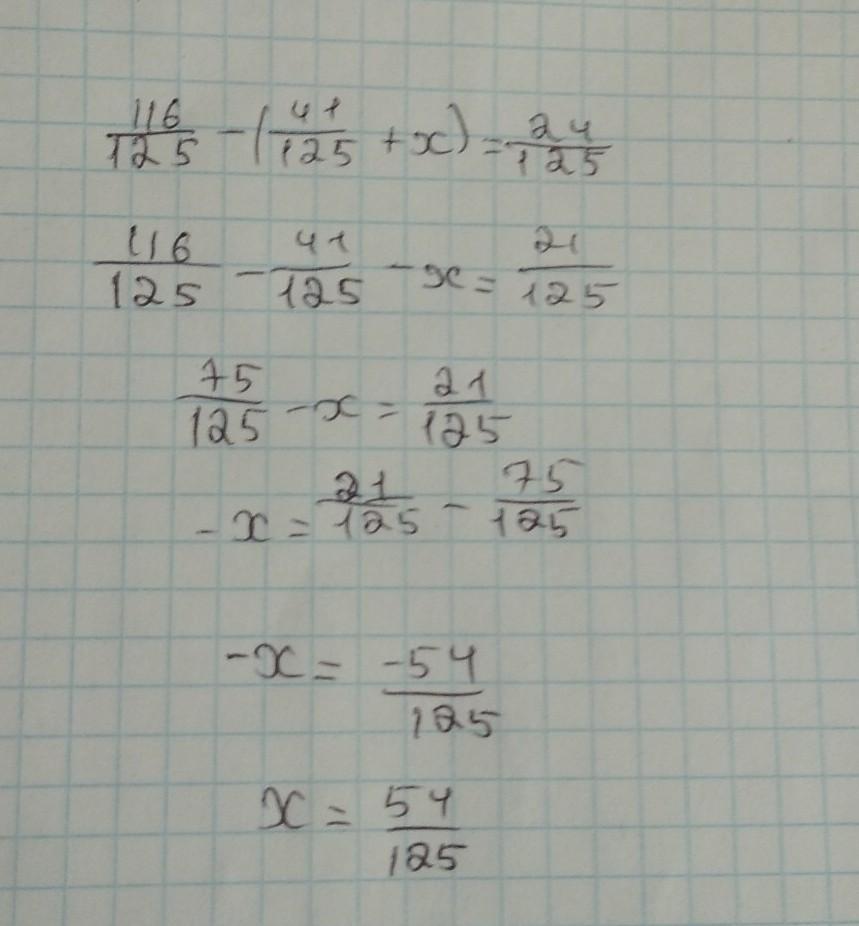 116/125 - (41/125 + x) = 24/125
116/125 - 41/125 - x = 21/125
75/125 - x = 21/125
- x = 21/125 - 75/125
-x = -54/125
x = 54/125